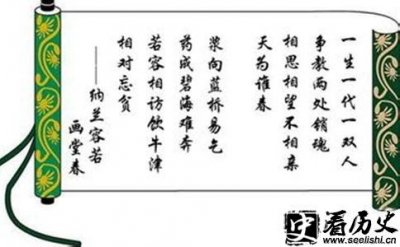 一生一代一双人
争教两处销魂
相思相望不相亲
天为谁春
浆向蓝桥易乞
药成碧海难奔
若容相访饮牛津
相对忘贫
——纳兰容若
画堂春
看历史
www.seelishi.cn